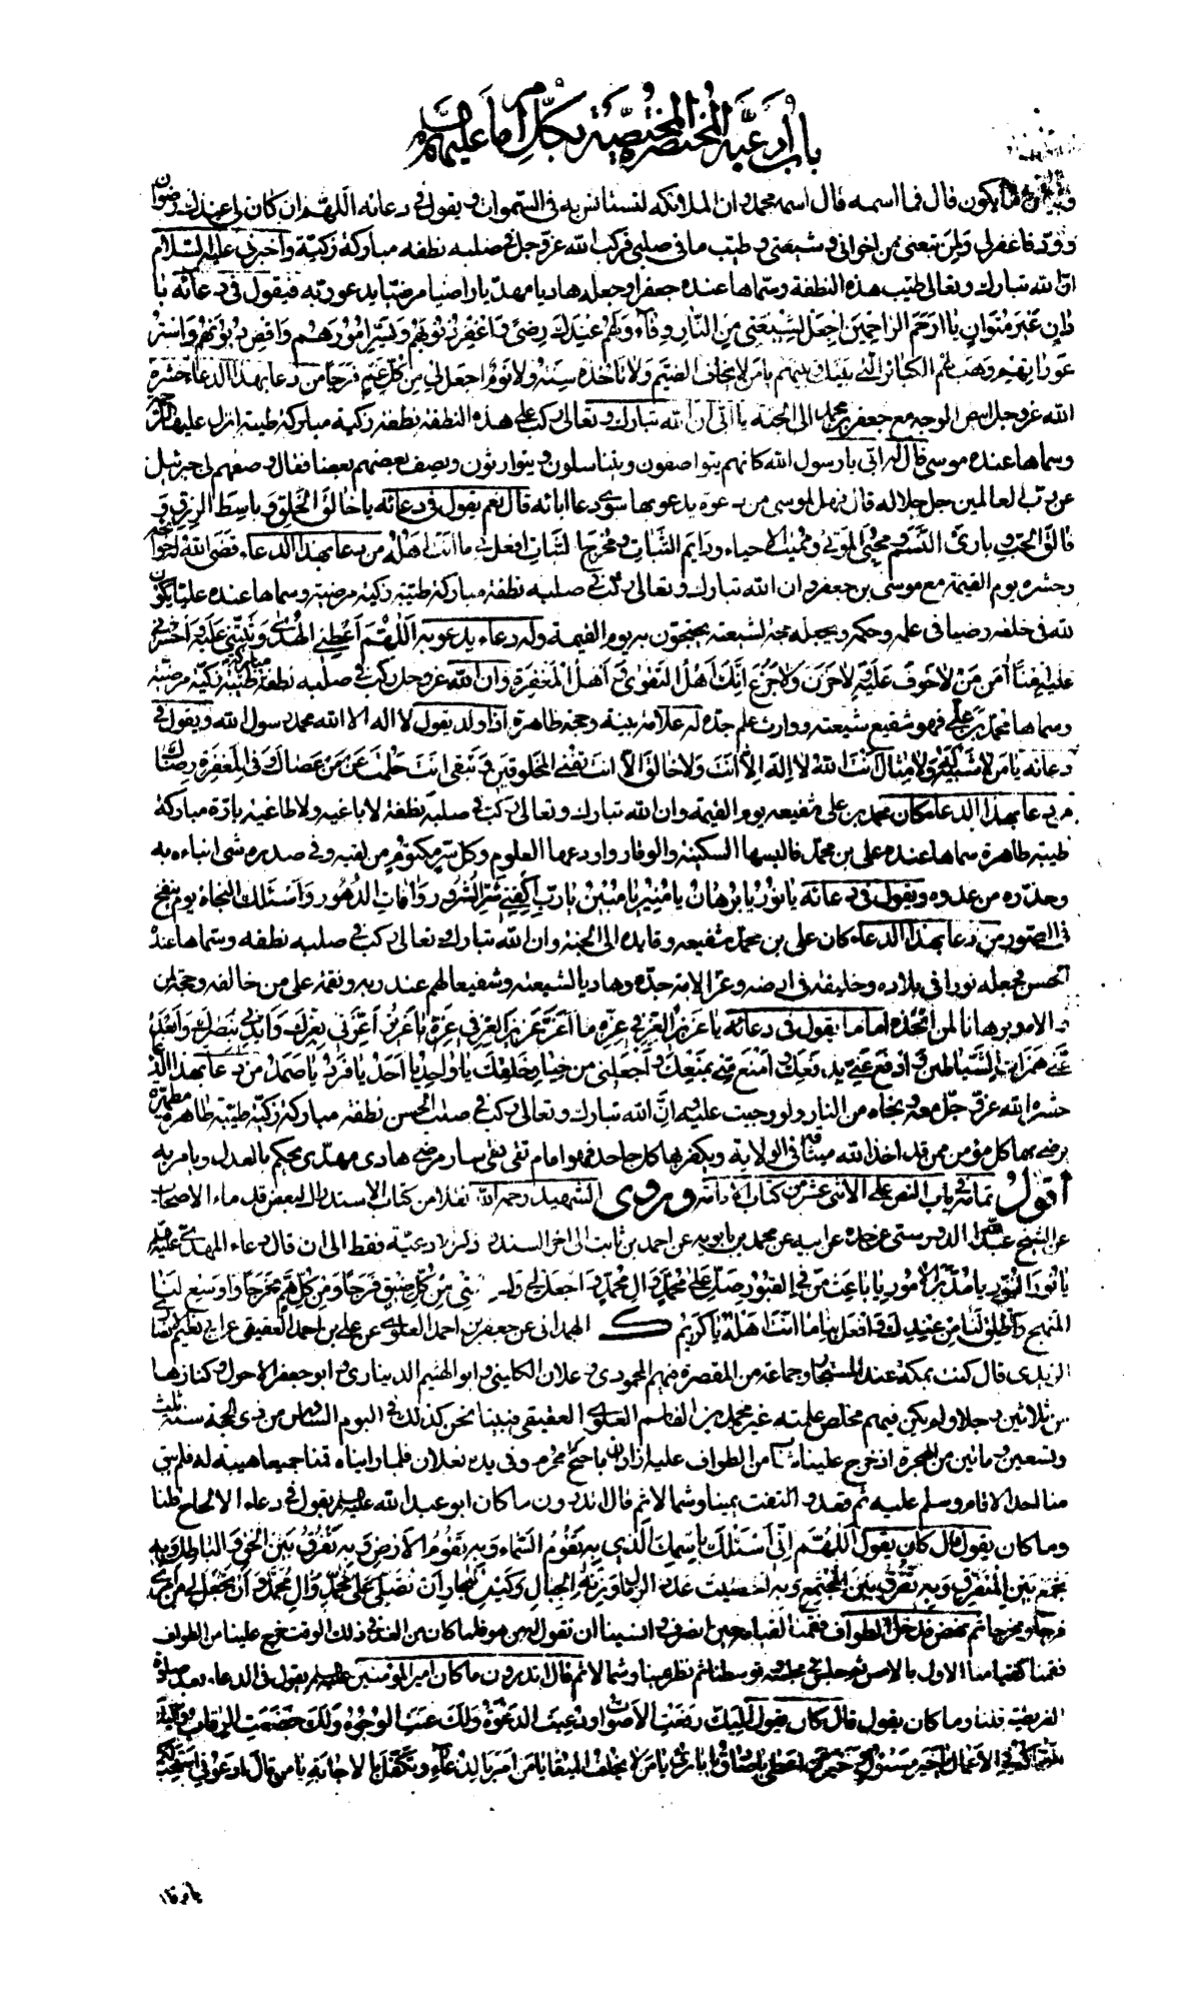 باب أدعية المختصرة المختصية بكل إمام عليهم
ما يكون قال فما اسمه قال اسمه محمد وان الملائكة لتستانس به في السموات ويقول في دعائه اللهم ان كان لي عندك رضوان
وود فاغفر لي ولمن تبعني من اخواني وشيعتي وطيب ما في صلبي فركب الله عز وجل في صلبه نطفة مباركة زكية واخبرني عليه السلام
ان الله تبارك وتعالى طيب هذه النطفة وسماها عنده جعفرا وجعله هاديا مهديا راضيا مرضيا يدعو ربه فيقول في دعائه يا
دان غير متوان يا ارحم الراحمين اجعل لشيعتي من النار وقاء ولهم عندك رضى فاغفر ذنوبهم ويسر امورهم واقض ديونهم واستر
عوراتهم وهب لهم الكبائر التي بينك وبينهم يا من لا يخاف الضيم ولا تاخذه سنة ولا نوم اجعل لي من كل غم فرجا من دعا بهذا الدعاء حشره
الله عز وجل ابيض الوجه مع جعفر بن محمد الى الجنة يا ابي ان الله تبارك وتعالى ركب على هذه النطفة نطفة زكية مباركة طيبة انزل عليها الرحمة
وسماها عنده موسى قال له ابي يا رسول الله كانهم يتواصفون ويتناسلون ويتوارثون ويصف بعضهم بعضا فقال وصفهم لي جبرئيل
عن رب العالمين جل جلاله قال فهل لموسى من دعوة يدعو بها سوى دعاء ابائه قال نعم يقول في دعائه يا خالق الخلق ويا باسط الرزق و
فالق الحب وبارئ النسم ومحيي الموتى ومميت الاحياء ودايم الثبات ومخرج النبات افعل بي ما انت اهله من دعا بهذا الدعاء قضى الله حوائجه
وحشره يوم القيمة مع موسى بن جعفر وان الله تبارك وتعالى ركب في صلبه نطفة مباركة طيبة زكية مرضية وسماها عنده عليا يكون
لله في خلقه رضيا في علمه وحكمه ويجعله حجة لشيعته يحتجون به يوم القيمة وله دعاء يدعو به اللهم اعطني الهدى وثبتني عليه واحشرني
عليه امنا امن من لا خوف عليه ولا حزن ولا جزع انك اهل التقوى واهل المغفرة وان الله عز وجل ركب في صلبه نطفة مباركة طيبة زكية مرضية
وسماها محمد بن علي فهو شفيع شيعته ووارث علم جده له علامة بينة وحجة ظاهرة اذا ولد يقول لا اله الا الله محمد رسول الله ويقول في
دعائه يا من لا شبيه له ولا مثال انت الله لا اله الا انت ولا خالق الا انت تفني المخلوقين وتبقى انت حلمت عمن عصاك وفي المغفرة رضاك
من دعا بهذا الدعاء كان محمد بن علي شفيعه يوم القيمة وان الله تبارك وتعالى ركب في صلبه نطفة لا باغية ولا طاغية بارة مباركة
طيبة طاهرة سماها عنده علي بن محمد فالبسها السكينة والوقار واودعها العلوم وكل سر مكتوم من لقيه وفي صدره شئ انباءه به
وحذره من عدوه ويقول في دعائه يا نور يا برهان يا منير يا مبين يا رب اكفني شر الشرور وافات الدهور واسئلك النجاة يوم ينفخ
في الصور من دعا بهذا الدعاء كان علي بن محمد شفيعه وقايده الى الجنة وان الله تبارك وتعالى ركب في صلبه نطفة وسماها عنده
الحسن فجعله نورا في بلاده وخليفة في ارضه وعزا لامة جده وهاديا لشيعته وشفيعا لهم عند ربه ونقمة على من خالفه وحجة لمن
والاه وبرهانا لمن اتخذه اماما يقول في دعائه يا عزيز العز في عزه ما اعز عزيز العز في عزه يا عزيز اعزني بعزك وايدني بنصرك وابعد
عني همزات الشياطين وادفع عني بدفعك وامنع مني بمنعك واجعلني من خيار خلقك يا واحد يا احد يا فرد يا صمد من دعا بهذا الدعاء
حشره الله عز وجل معه ونجاه من النار ولو وجبت عليه وان الله تبارك وتعالى ركب في صلب الحسن نطفة مباركة زكية طيبة طاهرة مطهرة
يرضى بها كل مؤمن ممن قد اخذ الله ميثاقه في الولاية ويكفر بها كل جاحد فهو امام تقي نقي سار مرضي هادي مهدي يحكم بالعدل ويامر به
أقول تمامه في باب النص على الاثنى عشر من كتاب الامامة وروى الشهيد رحمه الله نقلا من كتاب الاستدراك لبعض قدماء الاصحاب
عن الشيخ عبد الله الدوريستي عن جده عن ابيه عن محمد بن بابويه عن احمد بن ثابت الى اخر السند وذكر الادعية فقط الى ان قال دعاء المهدي عليه السلام
يا نور النور يا مدبر الامور يا باعث من في القبور صل على محمد وال محمد واجعل لي ولشيعتي من كل ضيق فرجا ومن كل هم مخرجا واوسع لنا
المنهج واطلق لنا من عندك وافعل بنا ما انت اهله يا كريم ك الهمداني عن جعفر بن احمد العلوي عن علي بن احمد العقيقي عن ابي نعيم الانصاري
الزيدي قال كنت بمكة عند المستجار وجماعة من المقصرة فيهم المحمودي وعلان الكليني وابو الهيثم الديناري وابو جعفر الاحول وكنا زهاء
من ثلاثين رجلا ولم يكن فيهم مخلص علمته غير محمد بن القاسم العلوي العقيقي فبينا نحن كذلك في اليوم السادس من ذي الحجة سنة ثلث
وتسعين ومائتين من الهجرة اذ خرج علينا شاب من الطواف عليه ازاران ناصح محرم وفي يده نعلان فلما رايناه قمنا جميعا هيبة له فلم يبق
منا احد الا قام وسلم عليه ثم قعد والتفت يمينا وشمالا ثم قال اتدرون ما كان ابو عبد الله عليه السلام يقول في دعاء الالحاح قلنا
وما كان يقول قال كان يقول اللهم اني اسئلك باسمك الذي به تقوم السماء وبه تقوم الارض وبه تفرق بين الحق والباطل وبه
تجمع بين المتفرق وبه تفرق بين المجتمع وبه احصيت عدد الرمال وزنة الجبال وكيل البحار ان تصلي على محمد وال محمد وان تجعل لي من امري
فرجا ومخرجا ثم نهض فدخل الطواف فقمنا لقيامه حين انصرف وانسينا ان نقول له من هو فلما كان من الغد في ذلك الوقت خرج علينا من الطواف
فقمنا كقيامنا الاول بالامس ثم جلس في مجلسه متوسطا ثم نظر يمينا وشمالا ثم قال اتدرون ما كان امير المؤمنين عليه السلام يقول في الدعاء بعد صلوة
الفريضة قلنا وما كان يقول قال كان يقول اليك رفعت الاصوات ودعيت الدعوة ولك عنت الوجوه ولك خضعت الرقاب و
التحاكم في الاعمال يا خير مسئول وخير من اعطى يا صادق يا بارئ يا من لا يخلف الميعاد يا من امر بالدعاء وتكفل بالاجابة يا من قال ادعوني استجب لكم
يا من قال